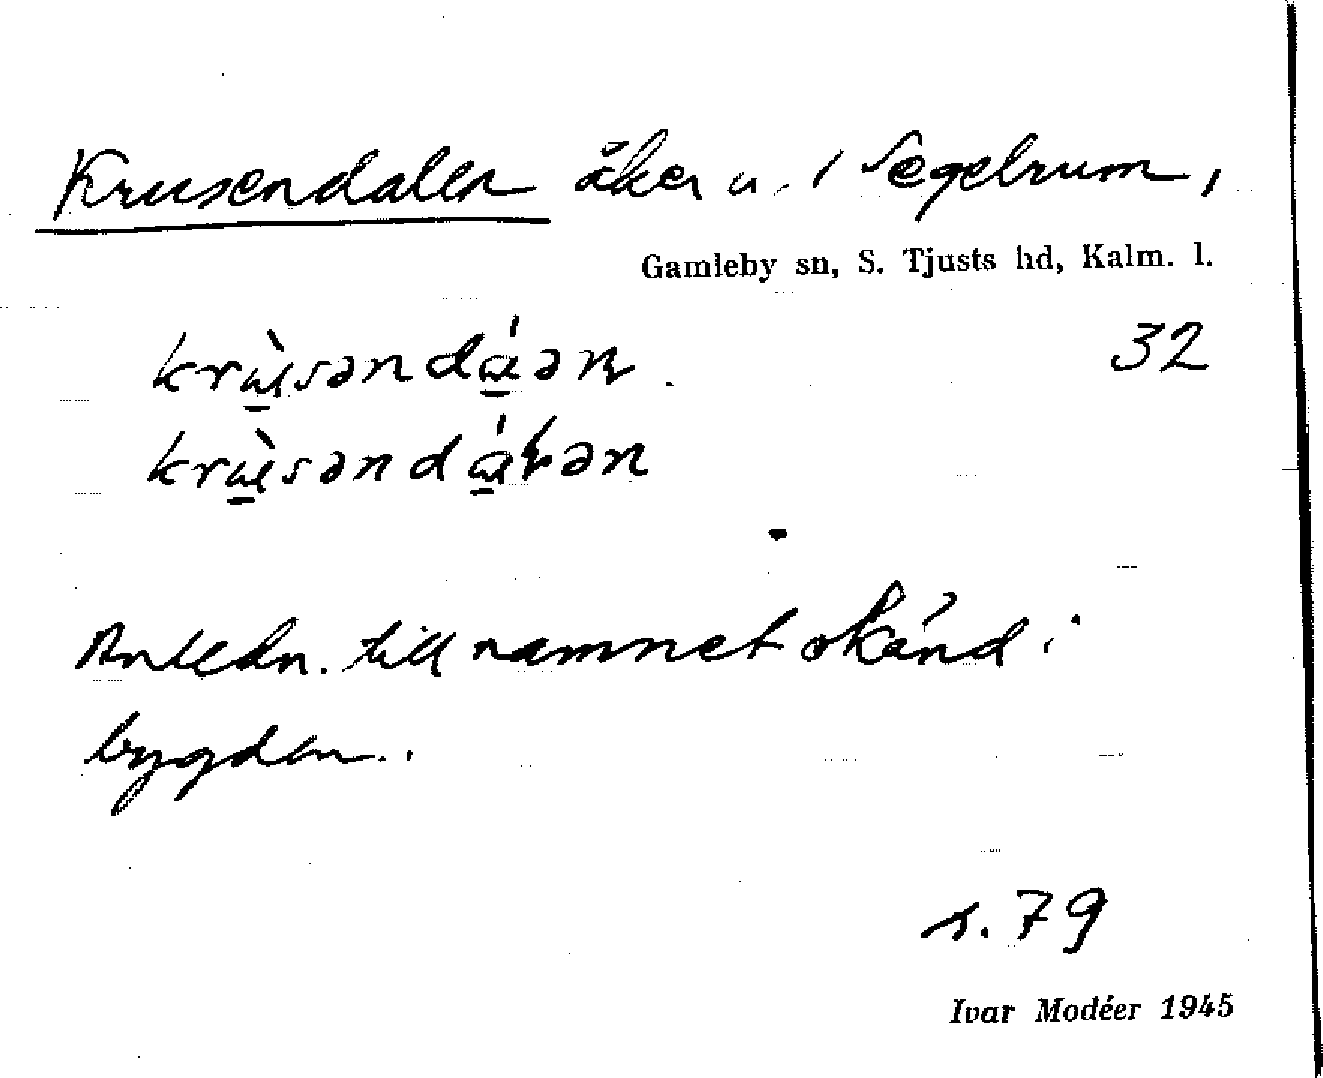 Krusendalen åker u. i Segelrum,
Gamleby sn, S. Tjusts hd, Kalm. l.
32
Anledn. till namnet okänd i
bygden.
s. 79
Ivar Modéer 1945